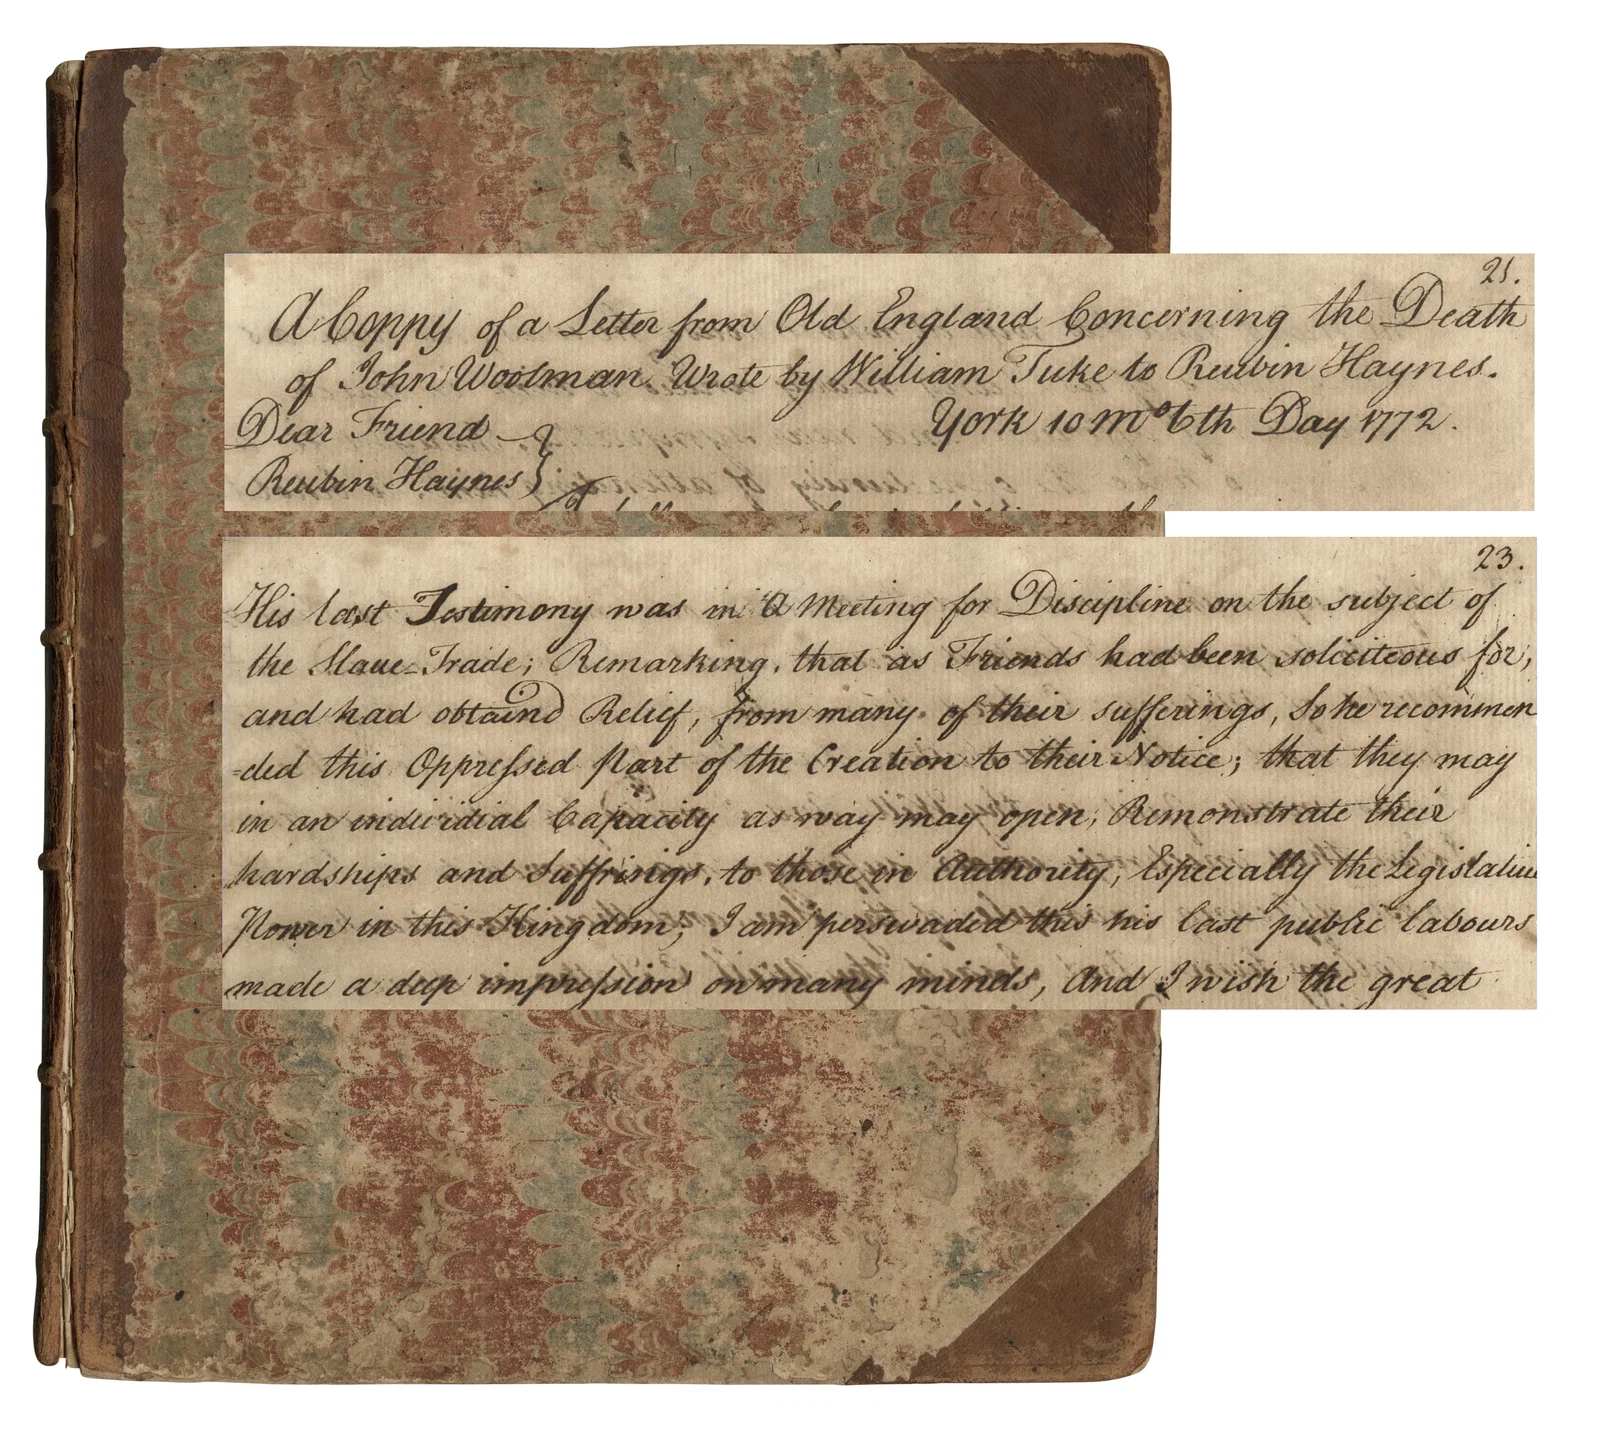 21.
A Coppy of a Letter from Old England Concerning the Death
of John Woolman. Wrote by William Tuke to Reubin Haynes.
Dear Friend
York 10 Mo 6th Day 1772.
Reubin Haynes
23.
His last Testimony was in A Meeting for Discipline on the subject of
the Slave-Trade; Remarking, that as Friends had been soliciteous for,
and had obtaind Relief, from many of their sufferings, So he recommen
=ded this Oppressed Part of the Creation to their Notice; that they may
in an individial Capacity as way may open, Remonstrate their
hardships and Suffrings, to those in Authority, Especially the Legislative
Power in this Kingdom; I am perswaded this his last public labours
made a deep impression on many minds, And I wish the great